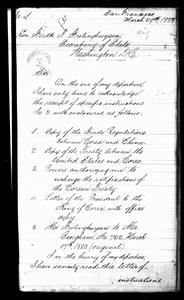 San Francisco
March 29th, 1883
Hon Fredk T. Frelinghuysen
Secretary of State
Washington D.C.
Sir
On the eve of my departure
I have only time to acknowledge
the receipt of specific instructions
No 3. with enclosures as follows:
1. Copy of the Trade Regulations
between Corea and China.
2. Copy of the Treaty between the
United States and Corea
3. Powers authorizing me to
exchange the ratifications of
the Corean Treaty
4. Letter of the President to the
King of Corea with office
copy.
5. Mr Frelinghuysen to Mr
Bingham, No 700, March
17th 1883 (original)
In the hurry of my departure
I have scarcely read this letter of
instructions